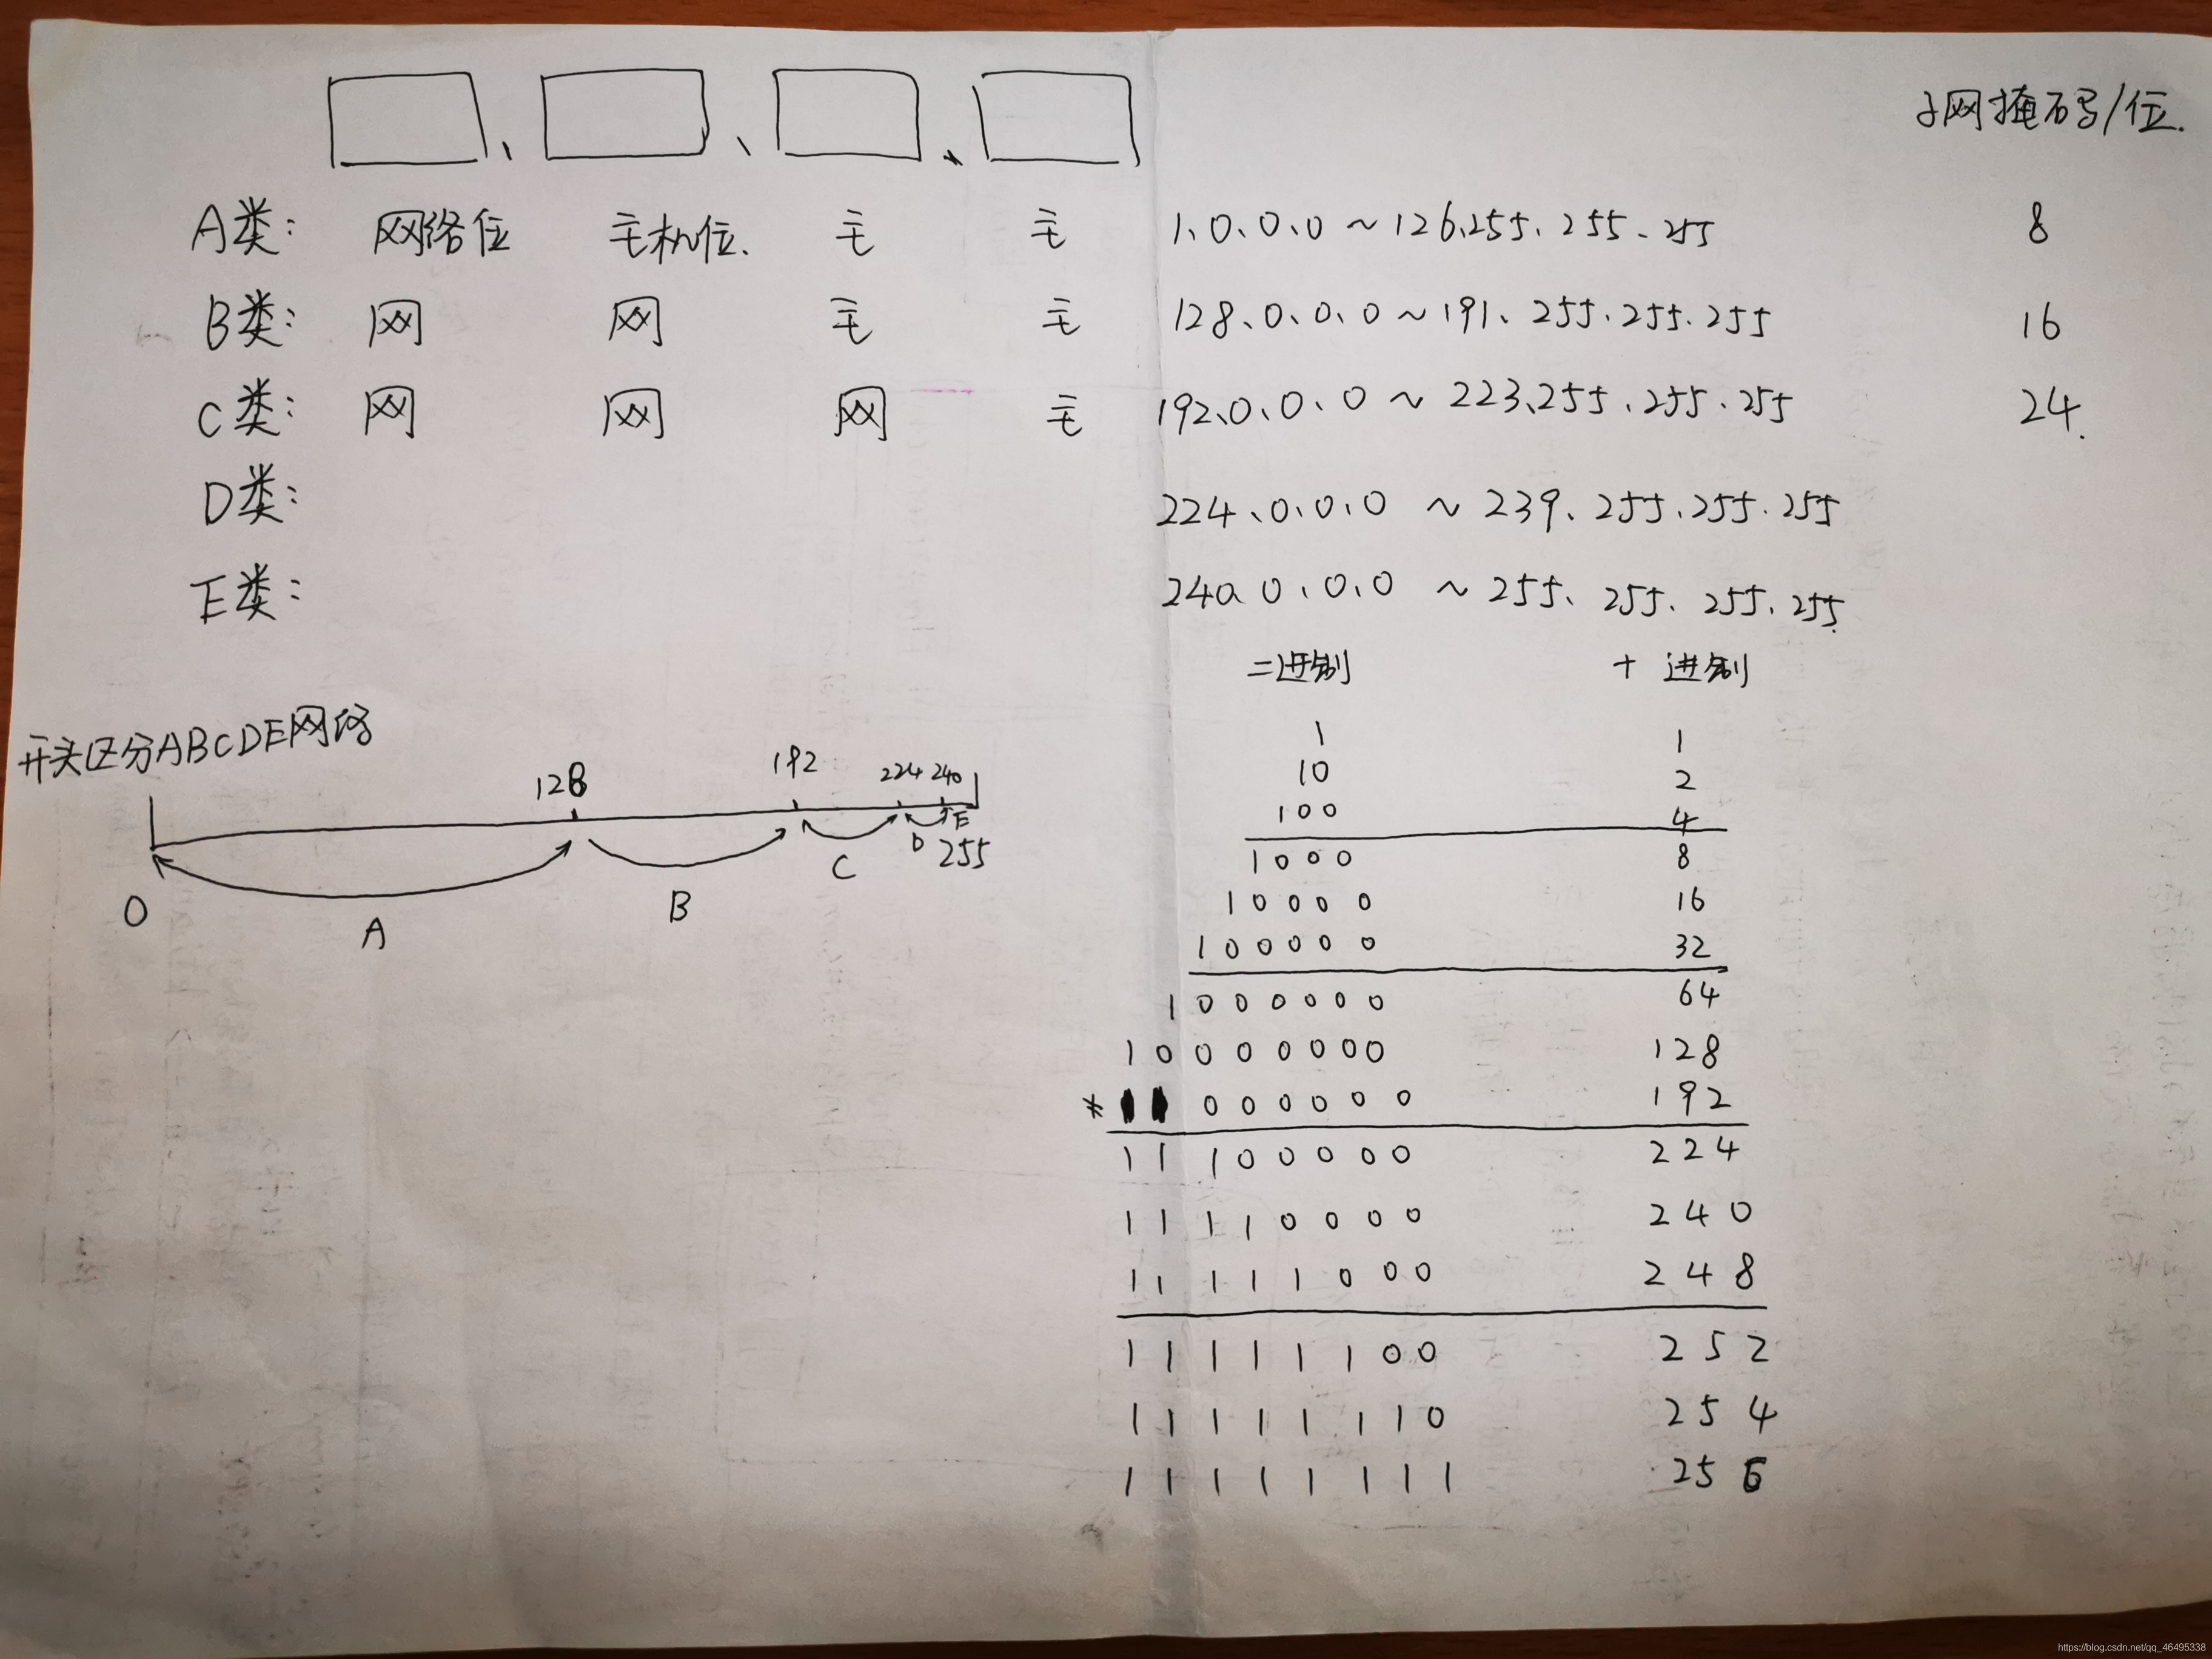 子网掩码/位.
A类: 网络位 主机位. 主 主 1、0、0、0 ~ 126、255、255、255 8
B类: 网 网 主 主 128、0、0、0 ~ 191、255、255、255 16
C类: 网 网 网 主 192、0、0、0 ~ 223、255、255、255 24.
D类: 224、0、0、0 ~ 239、255、255、255
E类: 240、0、0、0 ~ 255、255、255、255
开头区分ABCDE网络
128 192 224 240
0 A B C D E 255
二进制 十进制
1 1
10 2
100 4
1000 8
10000 16
100000 32
1000000 64
10000000 128
* 11000000 192
11100000 224
11110000 240
11111000 248
11111100 252
11111110 254
11111111
https://blog.csdn.net/qq_46495338